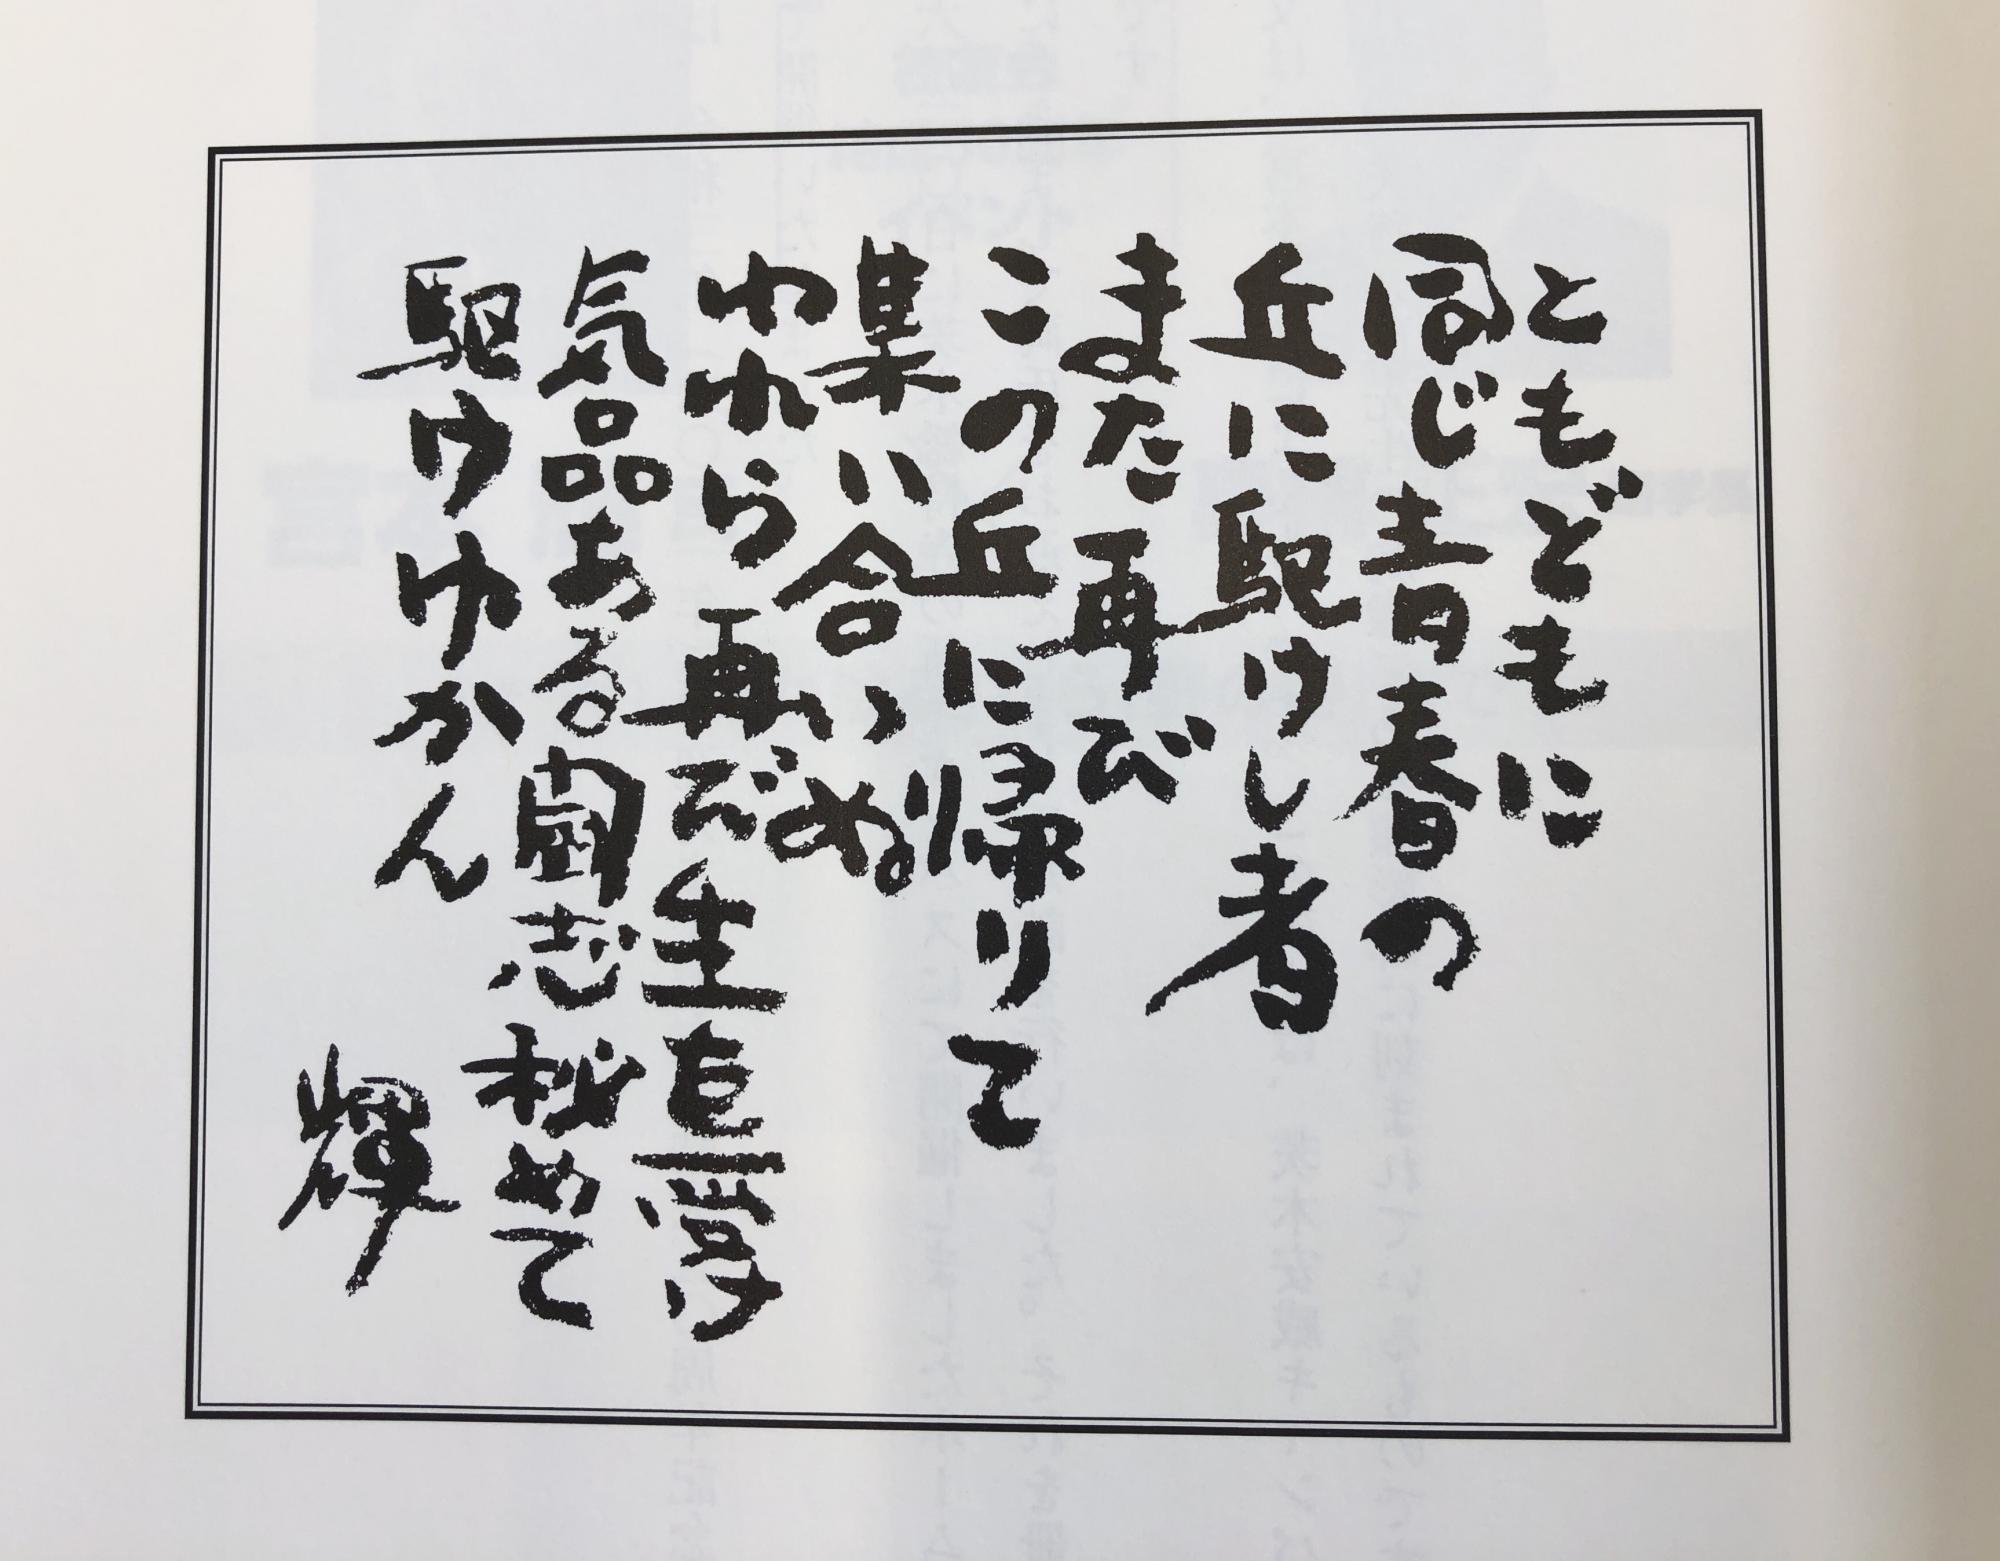 ともどもに
同じ青春の
丘に駆けし者
また再び
この丘に帰りて
集い合いぬ
われら再び生直営け
気品ある闘志秘めて
駆けゆかん
輝